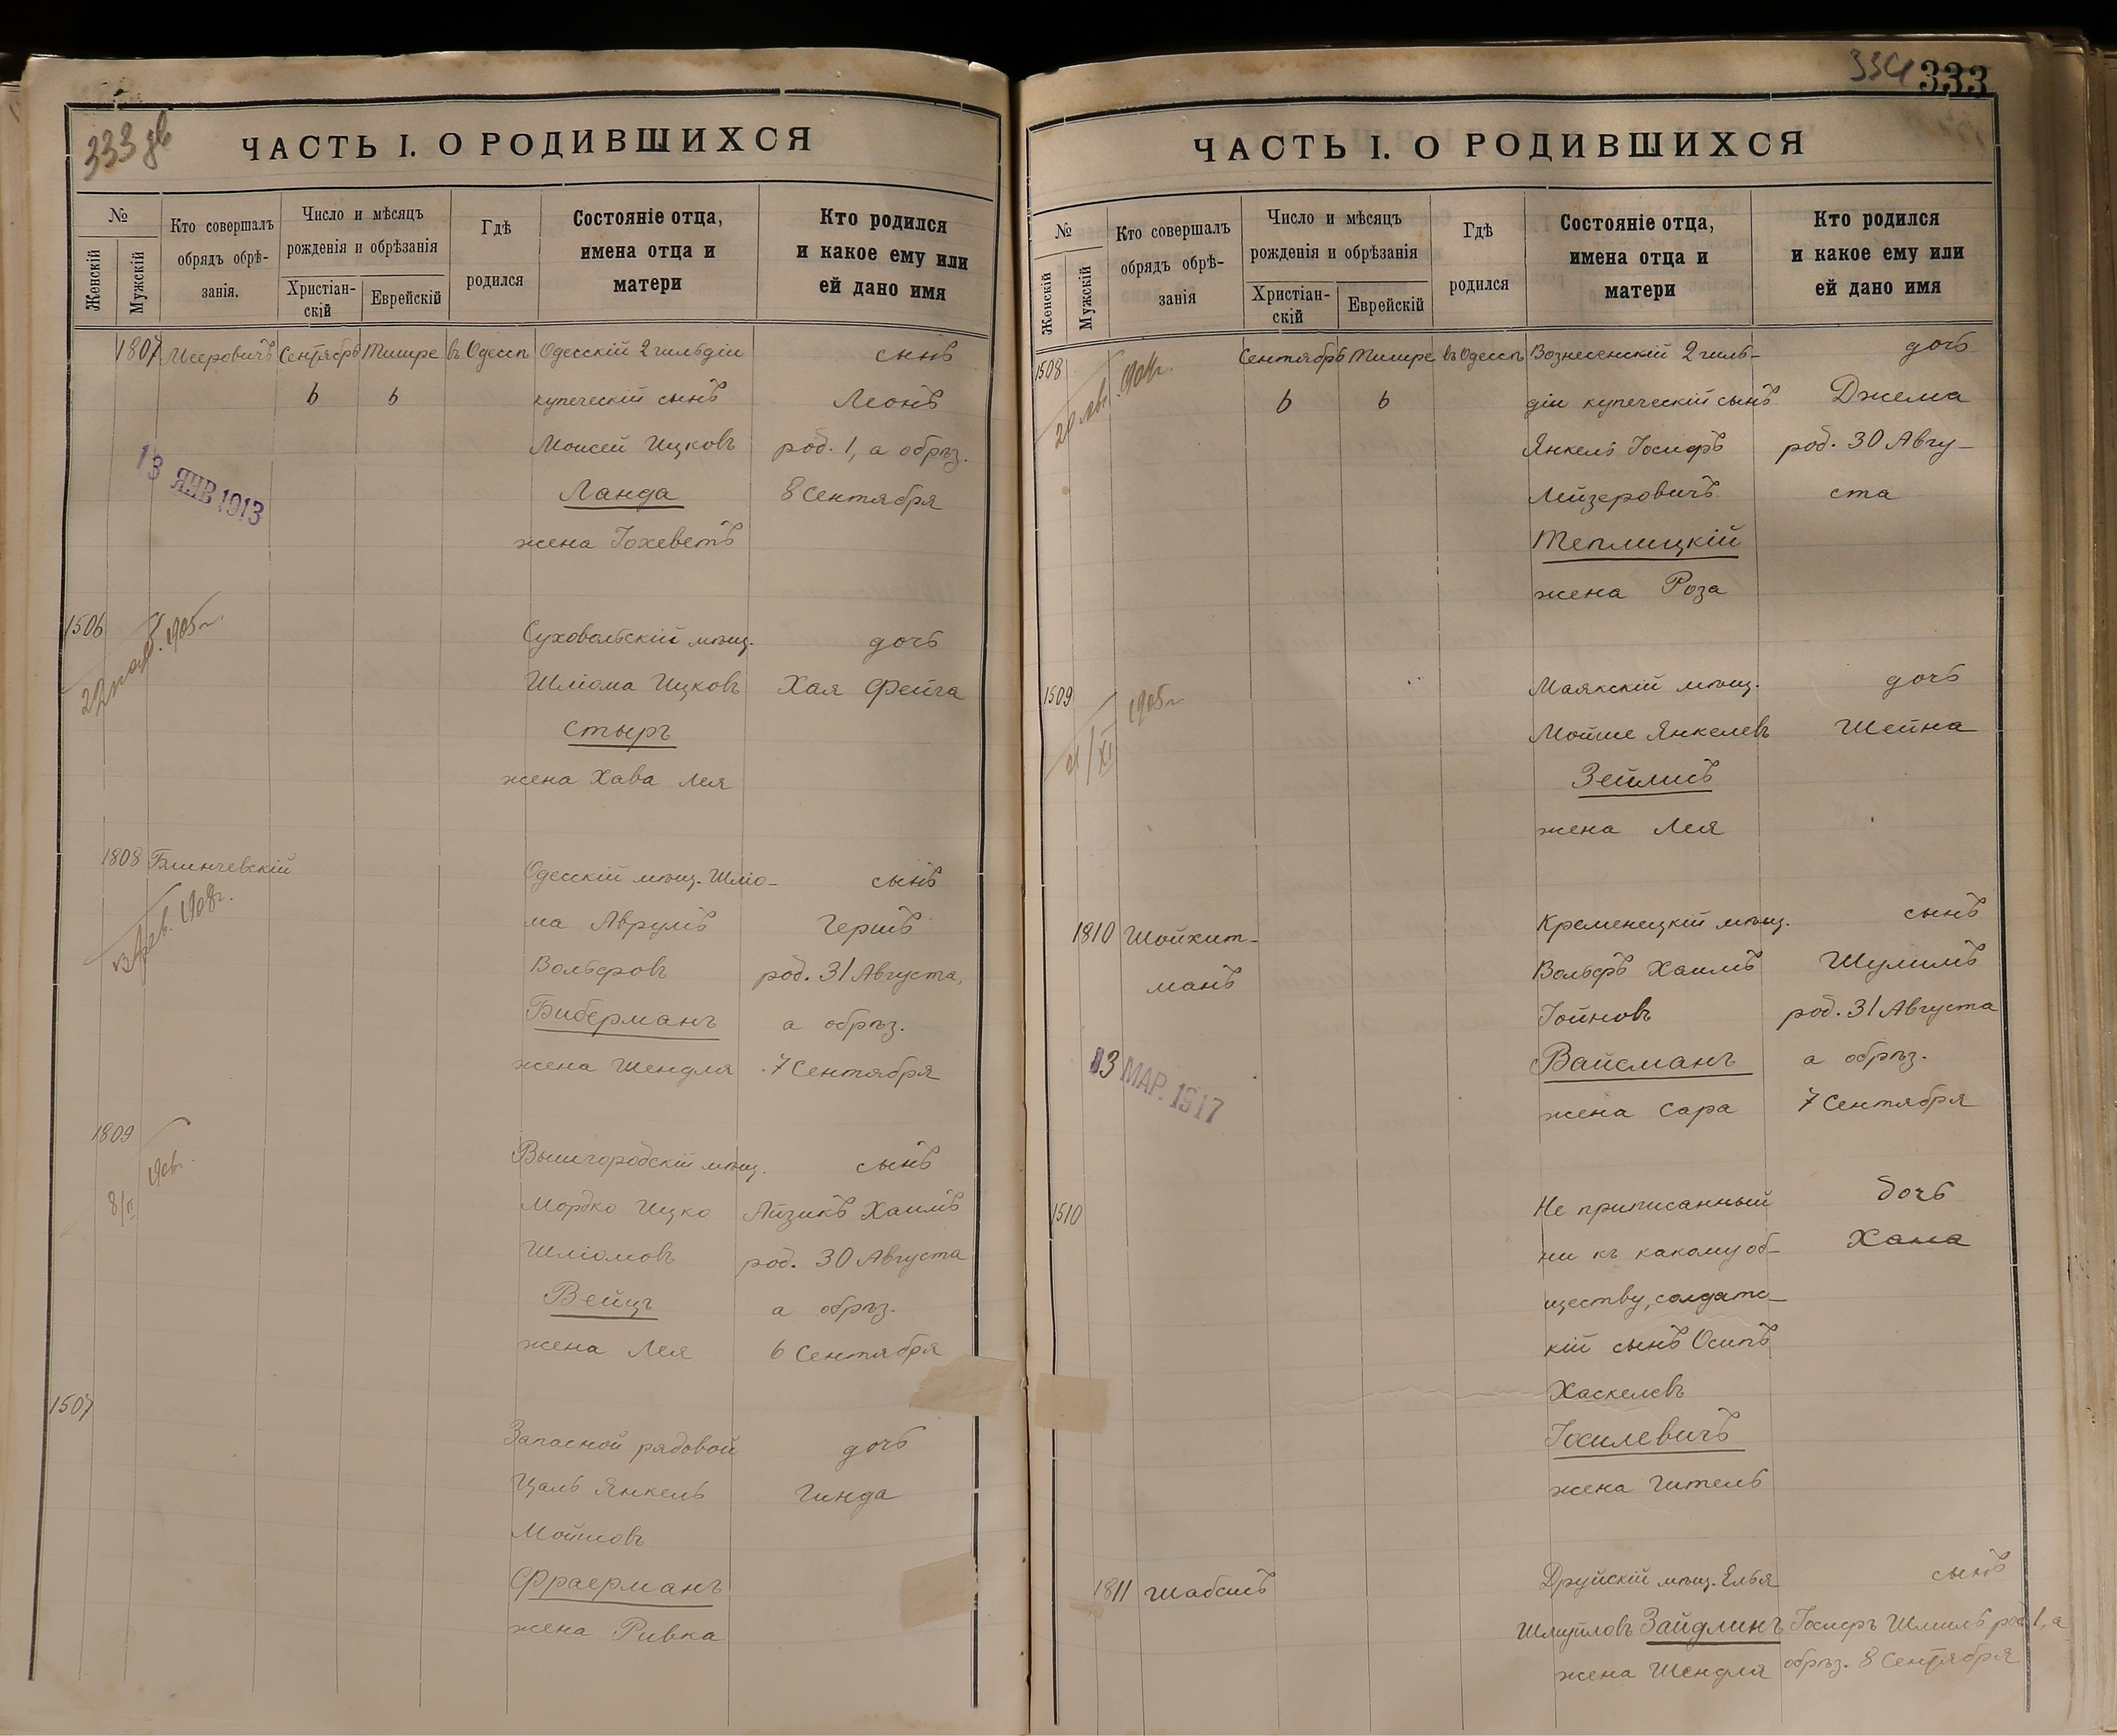 333 об
ЧАСТЬ I. О РОДИВШИХСЯ
№
Женскій
Мужскій
Кто совершалъ
обрядъ обрѣ-
занія.
Число и мѣсяцъ
рожденія и обрѣзанія
Христіан-
скій
Еврейскій
Гдѣ
родился
Состояніе отца,
имена отца и
матери
Кто родился
и какое ему или
ей дано имя
1807 Мееровичъ Сентябрь Тишре въ Одессѣ Одесскій 2 гильдіи сынъ
6 6 купеческій сынъ Леонъ
Моисей Ицковъ род. 1, а обрѣз.
Ланда 8 Сентября
жена Іохеветъ
13 ЯНВ 1913
1506 Суховольскій мѣщ. дочь
1905 г.
Шліома Ицковъ Хая Фейга
Стыръ
жена Хава Лея
1808 Блинчевскій Одесскій мѣщ. Шліо- сынъ
1908 г.
ма Аврумъ Гершъ
Вольфовъ род. 31 Августа,
Биберманъ а обрѣз.
жена Шендля 7 Сентября
1809 Вышгородскій мѣщ. сынъ
8/II
Мордко Ицко Айзикъ Хаимъ
Шліомовъ род. 30 Августа
Вейцъ а обрѣз.
жена Лея 6 Сентября
1507 Запасной рядовой дочь
Цаль Янкель Гинда
Мойшовъ
Фраерманъ
жена Ривка
334 333
ЧАСТЬ I. О РОДИВШИХСЯ
№
Женскій
Мужскій
Кто совершалъ
обрядъ обрѣ-
занія
Число и мѣсяцъ
рожденія и обрѣзанія
Христіан-
скій
Еврейскій
Гдѣ
родился
Состояніе отца,
имена отца и
матери
Кто родился
и какое ему или
ей дано имя
1508 Сентябрь Тишре въ Одессѣ Вознесенскій 2 гиль- дочь
6 6 діи купеческій сынъ Джема
Янкель Іосифъ род. 30 Авгу-
Лейзеровичъ ста
Теплицкій
жена Роза
1509 Маякскій мѣщ. дочь
21/XI 1905 г.
Мойше Янкелевъ Шейна
Зейлисъ
жена Лея
1810 Шойхит- Кременецкій мѣщ. сынъ
манъ Вольфъ Хаимъ Шулимъ
Іойновъ род. 31 Августа
Вайсманъ а обрѣз.
жена Сара 7 Сентября
13 МАР. 1917
1510 Не приписанный дочь
ни къ какому об- Хана
ществу, солдатс-
кій сынъ Осипъ
Хаскелевъ
Іосилевичъ
жена Гитель
1811 Шабсисъ Друйскій мѣщ. Элья сынъ
Шмуйловъ Зайдлинъ Іосифъ Шмиль род. 1, а
жена Шендля обрѣз. 8 Сентября